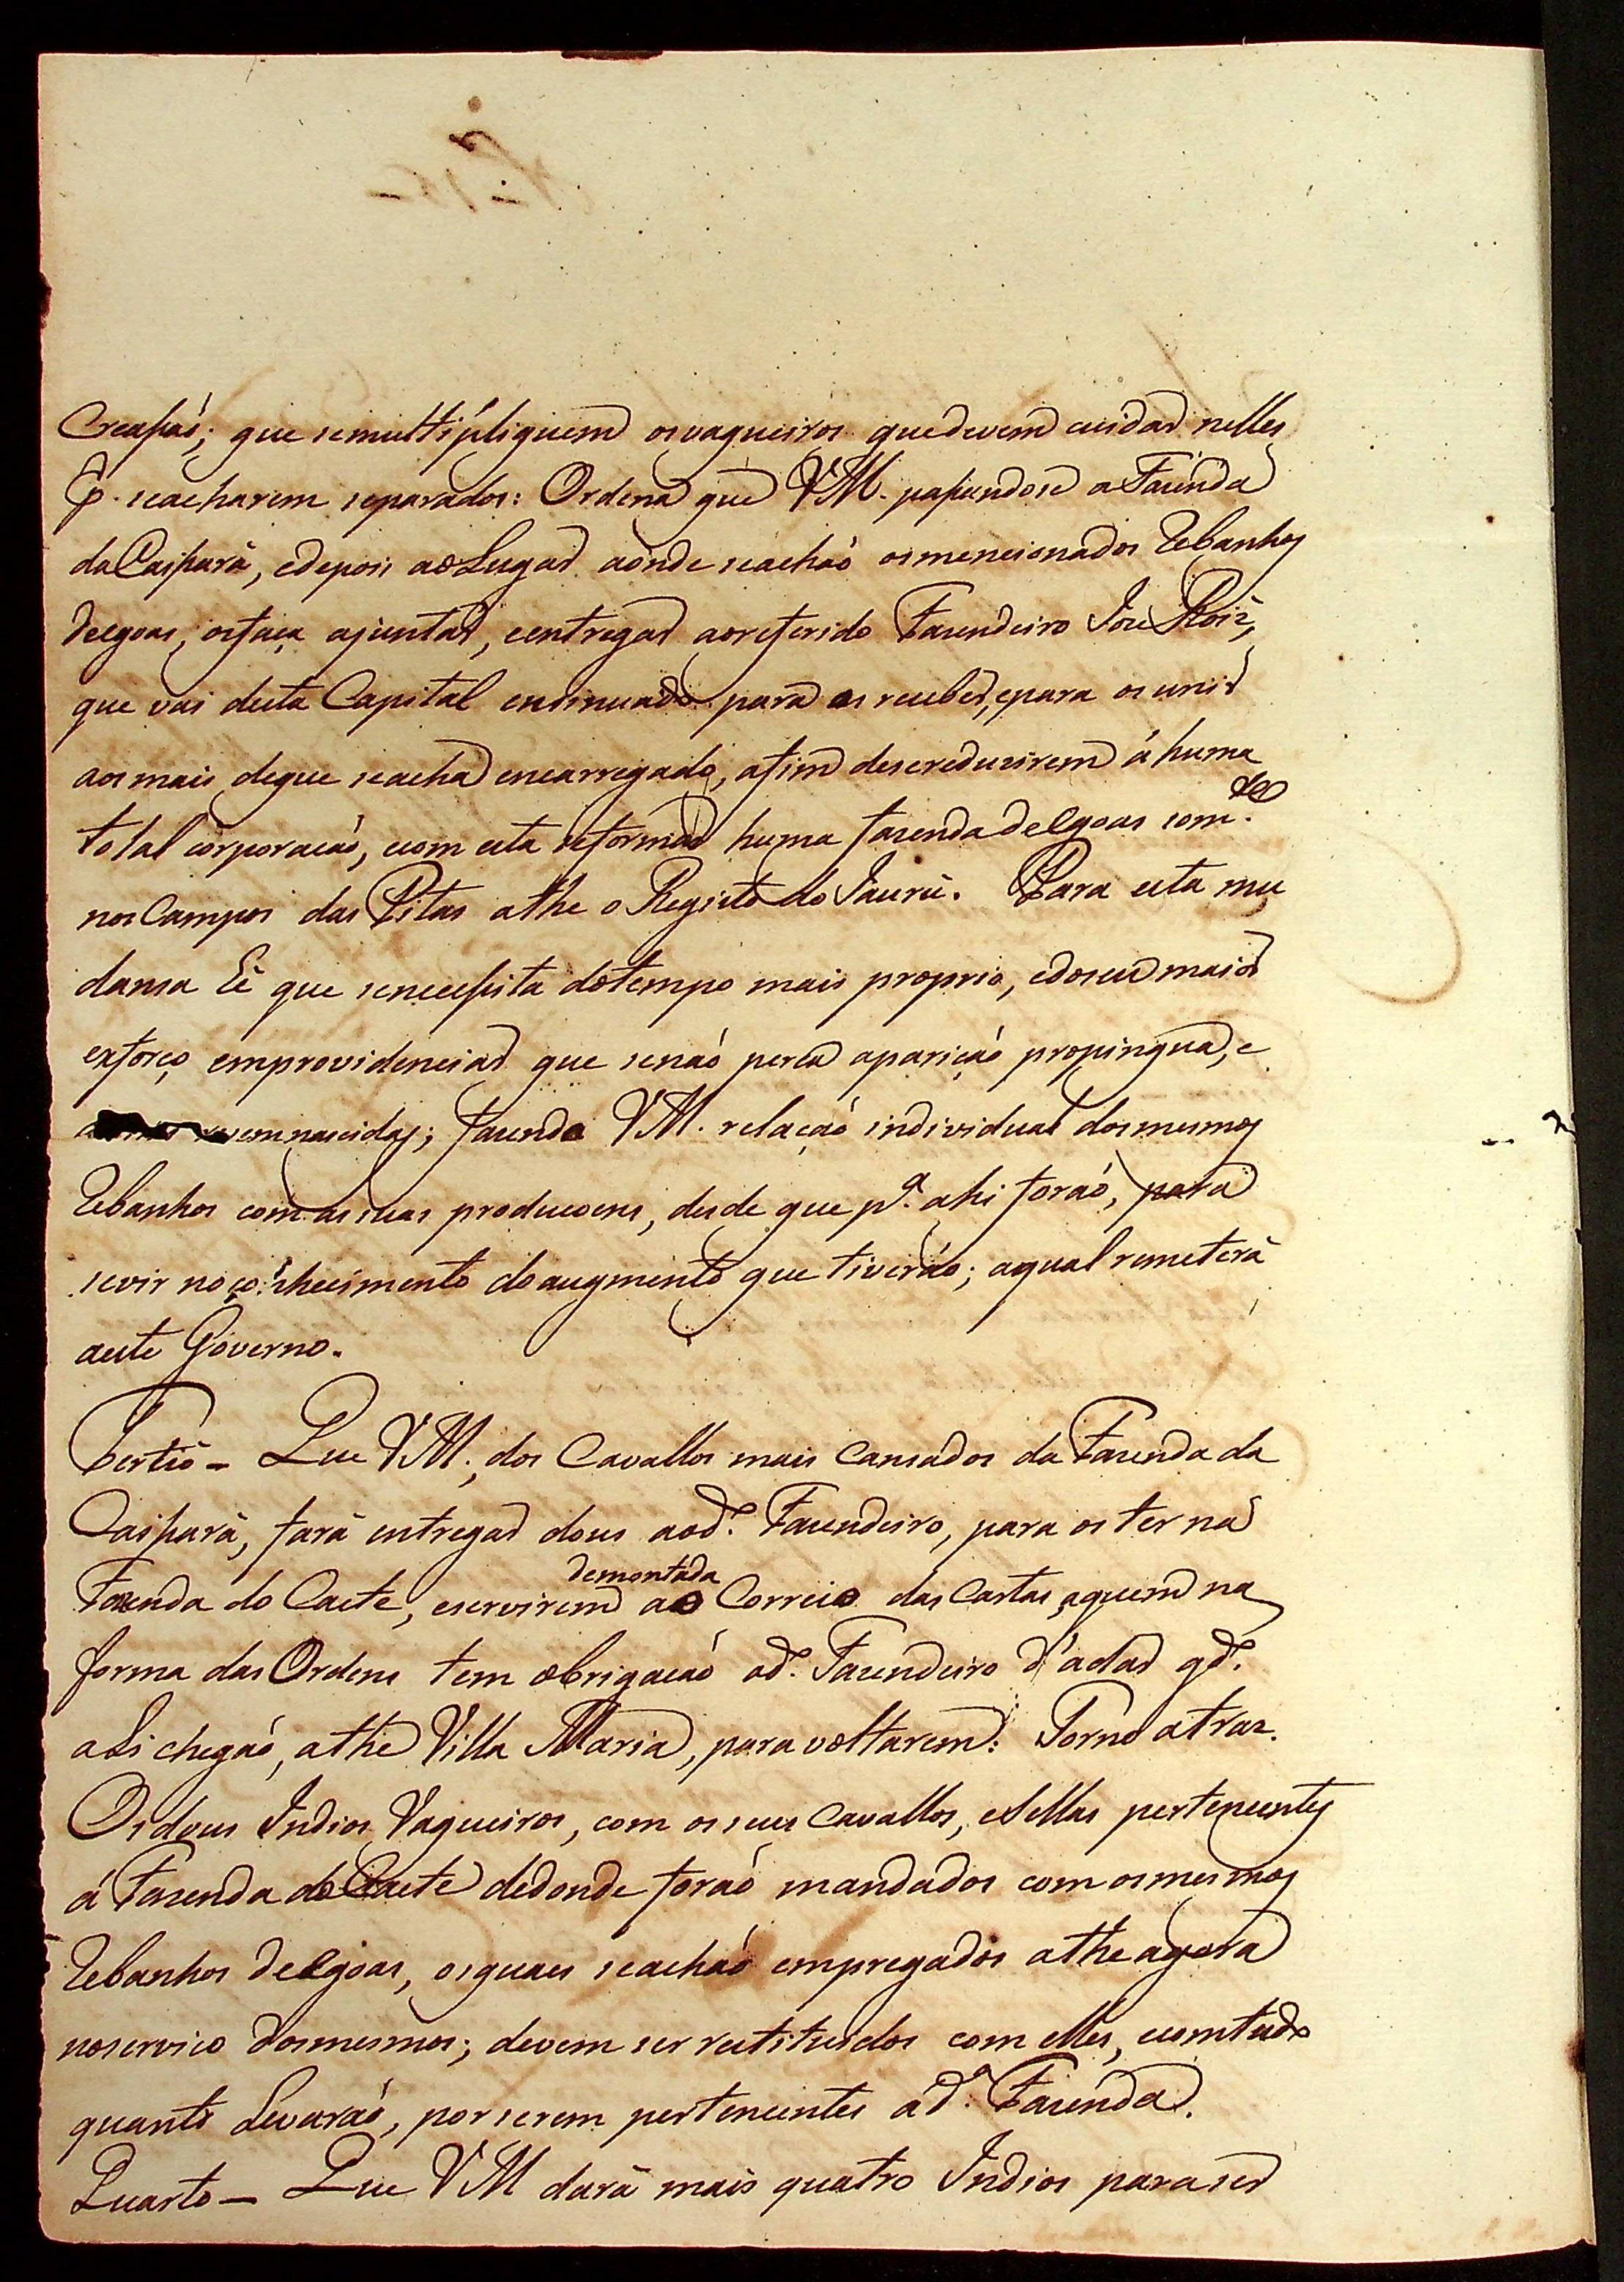 que semultipliquem osvaqueiros quedevem cuidar nelles
p. seacharem separados: Ordena que VM. passandose a Fazenda
da Caissara, edepois aoLugar aonde seachaõ osmencionados Rebanhos
deEgoas, osfaça ajuntar, eentregar aoreferido Fazendeiro Joze Roiz,
que vai desta Capital ensinuado para os receber, epara os unir
aos mais deque seacha encarregado, afim desereduzirem á huma
total corporacaõ, ecom esta seformar huma fazenda deEgoas som.te
nos Campos das Pitas athe o Registo do Jaurú. Para esta mu
dansa hé que senecessita dotempo mais proprio, edoseu maior
exforço emprovidenciar que senaõ perca apariçaõ propinqua, e
recemnascidas; fazendo VM. relaçaõ individual dosmesmos
Rebanhos com as suas producoens, desde que p.a ahi foraõ, para
sevir no conhecimento do augmento que tiveraõ; aqual remeterá
aeste Governo.
Tertio - Que VM., dos Cavallos mais Cansados da Fazenda da
Caissara, fará entregar dous aod.o Fazendeiro, para os ter na
Fazenda do Caete, eservirem demontada ao Correio das Cartas, aquem na
forma das Ordens tem obrigacaõ od.o Fazendeiro d'adar qd.o
ali chegaõ, athe Villa Maria, para voltarem: Torno atraz.
Os dous Indios Vaqueiros, com os seus Cavallos, eSellas pertencentes
á Fazenda do Caete dedonde foraõ mandados com osmesmos
Rebanhos deEgoas, osquaes seachaõ empregados athe agora
noservico dosmesmos; devem ser restituidos com elles, ecomtudo
quanto Levaraõ, por serem pertencentes ád.a Fazenda.
Quarto - Que VM dará mais quatro Indios para ser